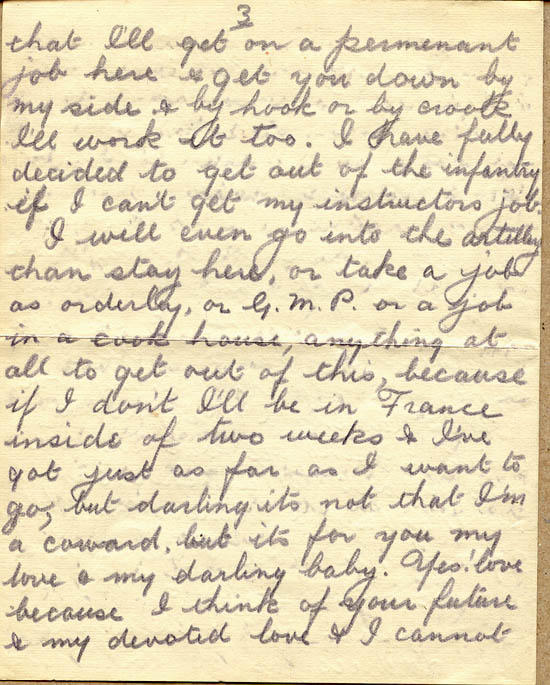 3
that I'll get on a permenant
job here & get you down by
my side & by hook or by crook
I'll work it too. I have fully
decided to get out of the infantry
if I can't get my instructors job.
I will even go into the artillery
than stay here, or take a job
as orderly, or G.M.P. or a job
in a cook house, anything at
all to get out of this, because
if I don't I'll be in France
inside of two weeks & I've
got just as far as I want to
go, but darling its not that I'm
a coward, but its for you my
love & my darling baby. Yes! love
because I think of your future
& my devoted love & I cannot